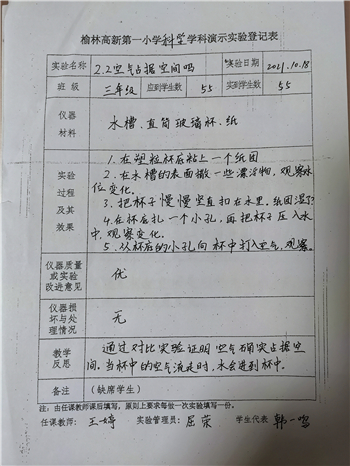 榆林高新第一小学科学学科演示实验登记表
实验名称 2.2空气占据空间吗 实验日期 2021.10.18
班级 三年级 应到学生数 55 实到学生数 55
仪器材料 水槽、直筒玻璃杯、纸
实验过程及其效果 1.在塑料杯底粘上一个纸团
2.在水槽的表面撒一些漂浮物,观察水
位变化。
3.把杯子慢慢竖直扣在水里。纸团湿了?
4.在杯底扎一个小孔,再把杯子压入水
中,观察变化。
5.从杯底的小孔向杯中打入空气,观察。
仪器质量或实验改进意见 优
仪器损坏与处理情况 无
教学反思 通过对比实验证明空气确实占据空
间。当杯中的空气流走时,水会进到杯中。
备注 (缺席学生)
注:由任课教师课后填写,原则上要求每做一次实验填写一份。
任课教师:王婷 实验管理员:屈荣 学生代表 韩一鸣